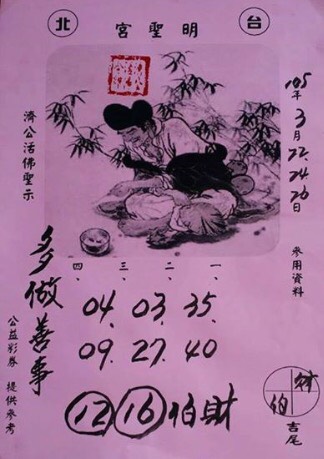 台北
明聖宮
105年3月22.24.26日
參用資料
濟公活佛聖示
一、二、三、四、
35、03、04、
40 27、09、
多做善事
12 16 伯財
公益彩券 提供參考
財
伯
吉尾